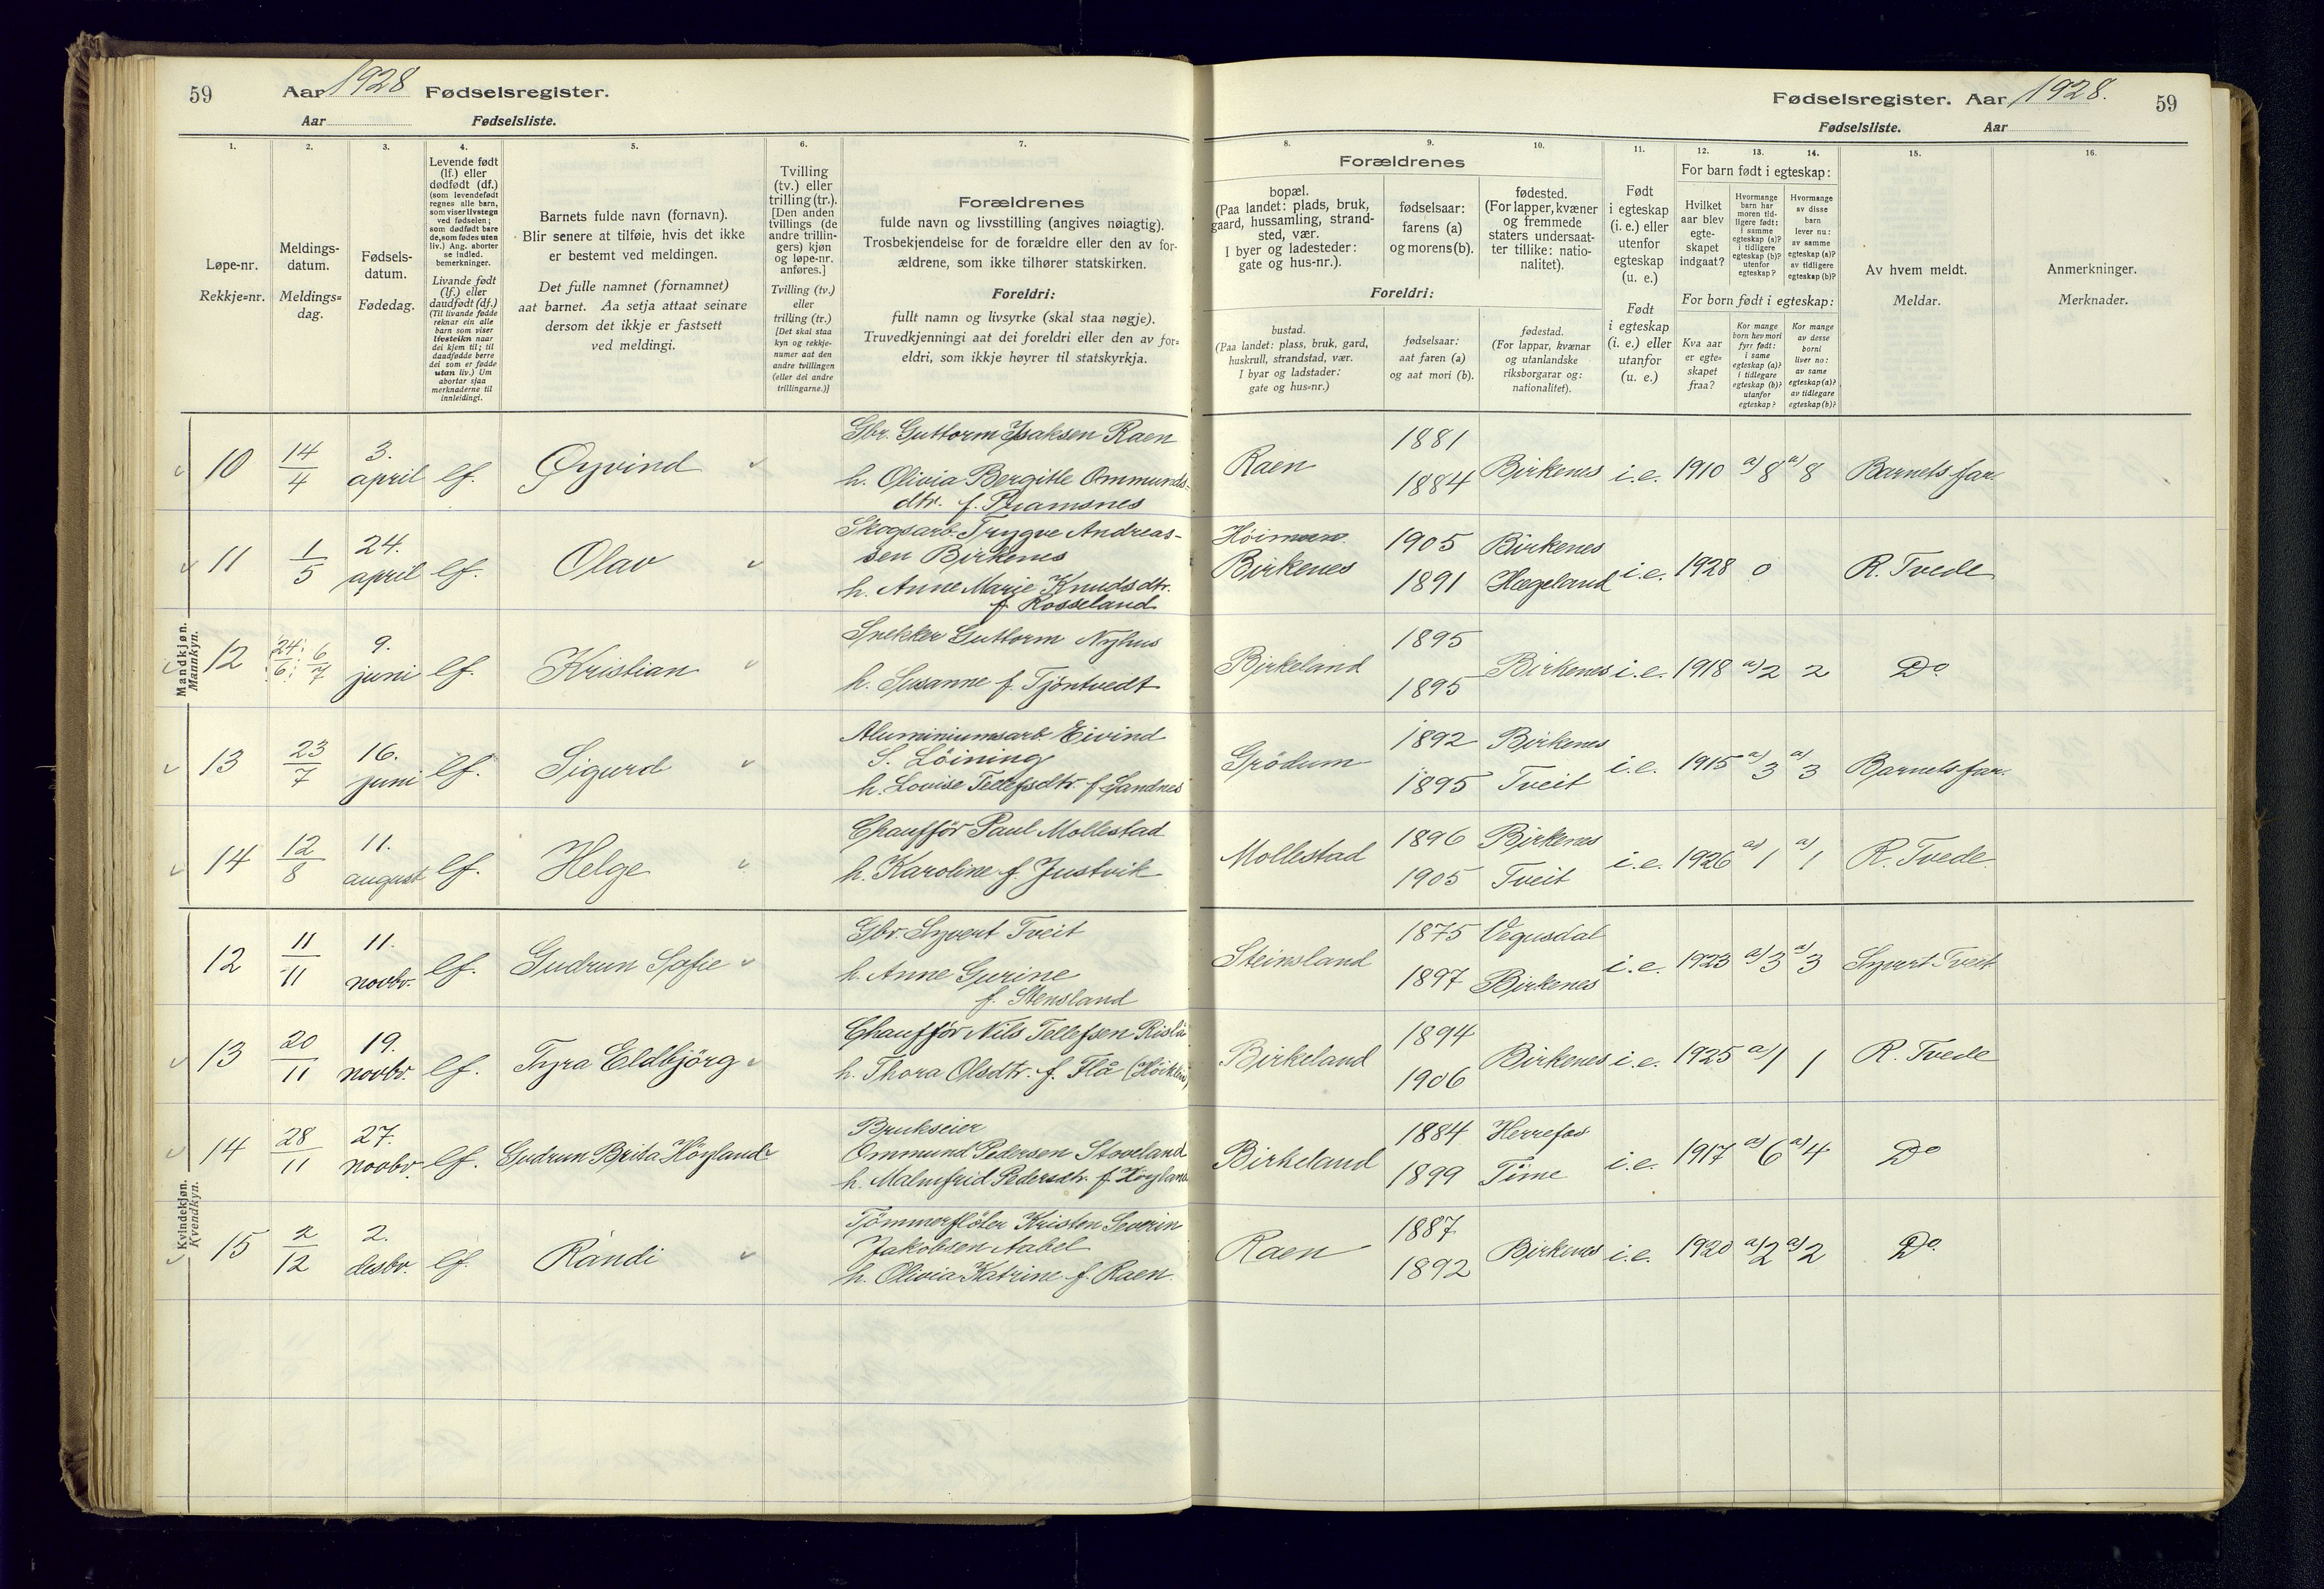 59 Aar 1928 Fødselsregister.
Aar Fødselsliste.
Fødselsregister. Aar 1928. 59
Fødselsliste. Aar
1. 2. 3. 4. 5. 6. 7.
Løpe-nr.
Rekkje=nr.
Meldings-
datum.
Meldings=
dag.
Fødsels-
datum.
Fødedag.
Levende født
(lf.) eller
dødfødt (df.)
(som levendefødt
regnes alle barn,
som viser livstegn
ved fødselen;
som dødfødt bare
de, som fødes uten
liv.) Ang. aborter
se indled.
bemerkninger.
Livande født
(lf.) eller
daudfødt (df.)
(Til livande fødde
reknar ein alle
barn som viser
livsteikn naar
dei kjem til; til
daudfødde berre
dei som er fødde
utan liv.) Um
abortar sjaa
merknaderne til
innleidingi.
Barnets fulde navn (fornavn).
Blir senere at tilføie, hvis det ikke
er bestemt ved meldingen.
Det fulle namnet (fornamnet)
aat barnet. Aa setja attaat seinare
dersom det ikkje er fastsett
ved meldingi.
Tvilling
(tv.) eller
trilling (tr.).
[Den anden
tvillings (de
andre trillin-
gers) kjøn
og løpe-nr.
anføres.]
Tvilling (tv.)
eller
trilling (tr.)
[Det skal staa
kyn og rekkje-
numer aat den
andre tvillingen
(eller dei andre
trillingarne.)]
Forældrenes
fulde navn og livsstilling (angives nøiagtig).
Trosbekjendelse for de forældre eller den av for-
ældrene, som ikke tilhører statskirken.
Foreldri:
fullt namn og livsyrke (skal staa nøgje).
Truvedkjenningi aat dei foreldri eller den av for=
eldri, som ikkje høyrer til statskyrkja.
8. 9. 10. 11. 12. 13. 14. 15. 16.
Forældrenes
bopæl.
(Paa landet: plads, bruk,
gaard, hussamling, strand-
sted, vær.
I byer og ladesteder:
gate og hus-nr.).
fødselsaar:
farens (a)
og morens (b).
fødested.
(For lapper, kvæner
og fremmede
staters undersaat-
ter tillike: natio-
nalitet).
Foreldri:
bustad.
(Paa landet: plass, bruk, gard,
huskrull, strandstad, vær.
I byar og ladstader:
gate og hus-nr.)
fødselsaar:
aat faren (a)
og aat mori (b).
fødestad.
(For lappar, kvænar
og utanlandske
riksborgarar og:
nationalitet).
Født
i egteskap
(i. e.) eller
utenfor
egteskap
(u. e.)
Født
i egteskap
(i. e.) eller
utanfor
(u. e.)
For barn født i egteskap:
Hvilket
aar blev
egte-
skapet
indgaat?
Hvormange
barn har
moren tid-
ligere født:
i samme
egteskap (a)?
i tidligere
egteskap (b)?
utenfor
egteskap?
Hvormange
av disse
barn
lever nu:
av samme
egteskap (a)?
av tidligere
egteskap (b)?
For born født i egteskap:
Kva aar
er egte=
skapet
fraa?
Kor mange
born hev mori
fyrr født:
i same
egteskap (a)?
i tidlegare
egteskap (b)?
utanfor
egteskap?
Kor mange
av desse
borni
liver no:
av same
egteskap (a)?
av tidlegare
egteskap (b)?
Av hvem meldt.
Meldar.
Anmerkninger.
Merknader.
Mandkjøn.
Mannkyn.
10 14/4 3. april lf. Øyvind
Gbr. Guttorm Isaksen Raen
h. Olivia Bergitte Ommunds-
dtr. f. Pramsnes
Raen 1881 1884 Birkenes i.e. 1910 a) 8 a) 8 Barnets far.
11 1/5 24. april lf. Olav
Skogsarb. Trygve Andreas-
sen Birkenes
h. Anne Marie Knudsdtr.
f. Rosseland
Birkenes 1905 Birkenes
1891 Hægeland i.e. 1928 0 R. Tvede
12 24/6 6/7 9. juni lf. Kristian
Snekker Guttorm Nyhus
h. Susanne f. Tjöntvedt
Birkeland 1895 1895 Birkenes i.e. 1918 a) 2 2 Do
13 23/7 16. juni lf. Sigurd
Aluminiumsarb. Eivind
S. Löining
h. Lovise Tellefsdtr. f. Sandnes
Grödum 1892 Birkenes
1895 Tveit i.e. 1915 a) 3 a) 3 Barnets far.
14 12/8 11. august lf. Helge
Chafför Paul Mollestad
h. Karoline f. Justvik
Mollestad 1896 Birkenes
1905 Tveit i.e. 1926 a) 1 a) 1 R. Tvede
Kvindekjøn.
Kvendkyn.
12 11/11 11. novbr. lf. Gudrun Sofie
Gbr. Syvert Tveit
h. Anne Gurine
f. Stensland
Steinsland 1875 Vegusdal
1897 Birkenes i.e. 1923 a) 3 a) 3 Syvert Tveit
13 20/11 19. novbr. lf. Thyra Eldbjörg
Chauffør Nils Tellefsen
h. Thora Olsdtr. f. Flå
Birkeland 1894 1906 Birkenes i.e. 1925 a) 1 1 R. Tvede
14 28/11 27. novbr. lf. Gudrun Brita Höyland
Brukseier
Ommund Pedersen Stoveland
h. Malmfrid Pedersdtr. f. Höyland
Birkeland 1884 Herrefos
1899 Time i.e. 1917 a) 6 a) 4 Do
15 2/12 2. desbr. lf. Randi
Tömmerflöter Kristen Severin
Jakobsen Aabel
h. Olivia Katrine f. Raen
Raen 1887 1892 Birkenes i.e. 1920 a) 2 a) 2 Do.